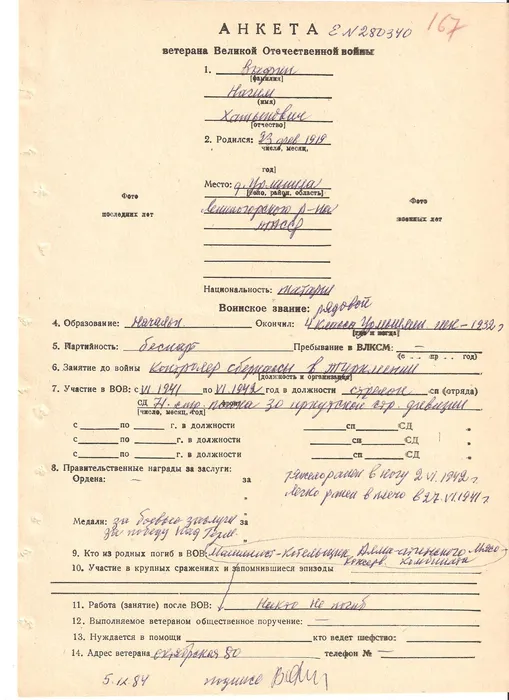 АНКЕТА Е N 280340 167
ветерана Великой Отечественной войны
1.
(фамилия)
Нагим
(имя)
(отчество)
2. Родился: 23 фев 1919
число, месяц,
год)
Место: д.
(село, район, область)
Лениногорского р-на
ТАССР
Фото
последних лет
Фото
военных лет
Национальность: татарин
Воинское звание: рядовой
4. Образование: начальн Окончил: 4 класса 1932 г
(где и когда)
5. Партийность: беспарт Пребывание в ВЛКСМ: —
(с . . . пр . . . год)
6. Занятие до войны контролер сберкассы в Туркмении
(должность и организация)
7. Участие в ВОВ: с VI 1941 по VI 1942 год в должности стрелок сп (отряда)
СД 71 стр. полка 30 иркутской стр. дивизии
(число, месяц, год)
с по г. в должности сп СД „
с по г. в должности сп СД „
с по г. в должности сп СД „
8. Правительственные награды за заслуги:
Ордена: — за тяжело ранен в ногу 2 VI. 1942 г
за легко ранен в плечо в 27. VI. 1941 г
Медали: за боевые заслуги за
за победу над Герм. за
9. Кто из родных погиб в ВОВ: Машинист-котельщик Алма-атинского мясо-
консерв. комбината
10. Участие в крупных сражениях и запомнившиеся эпизоды
11. Работа (занятие) после ВОВ: Никто не погиб
12. Выполняемое ветераном общественное поручение: —
13. Нуждается в помощи кто ведет шефство:
14. Адрес ветерана октябрьская 80 телефон № —
5.IX.84 подпись